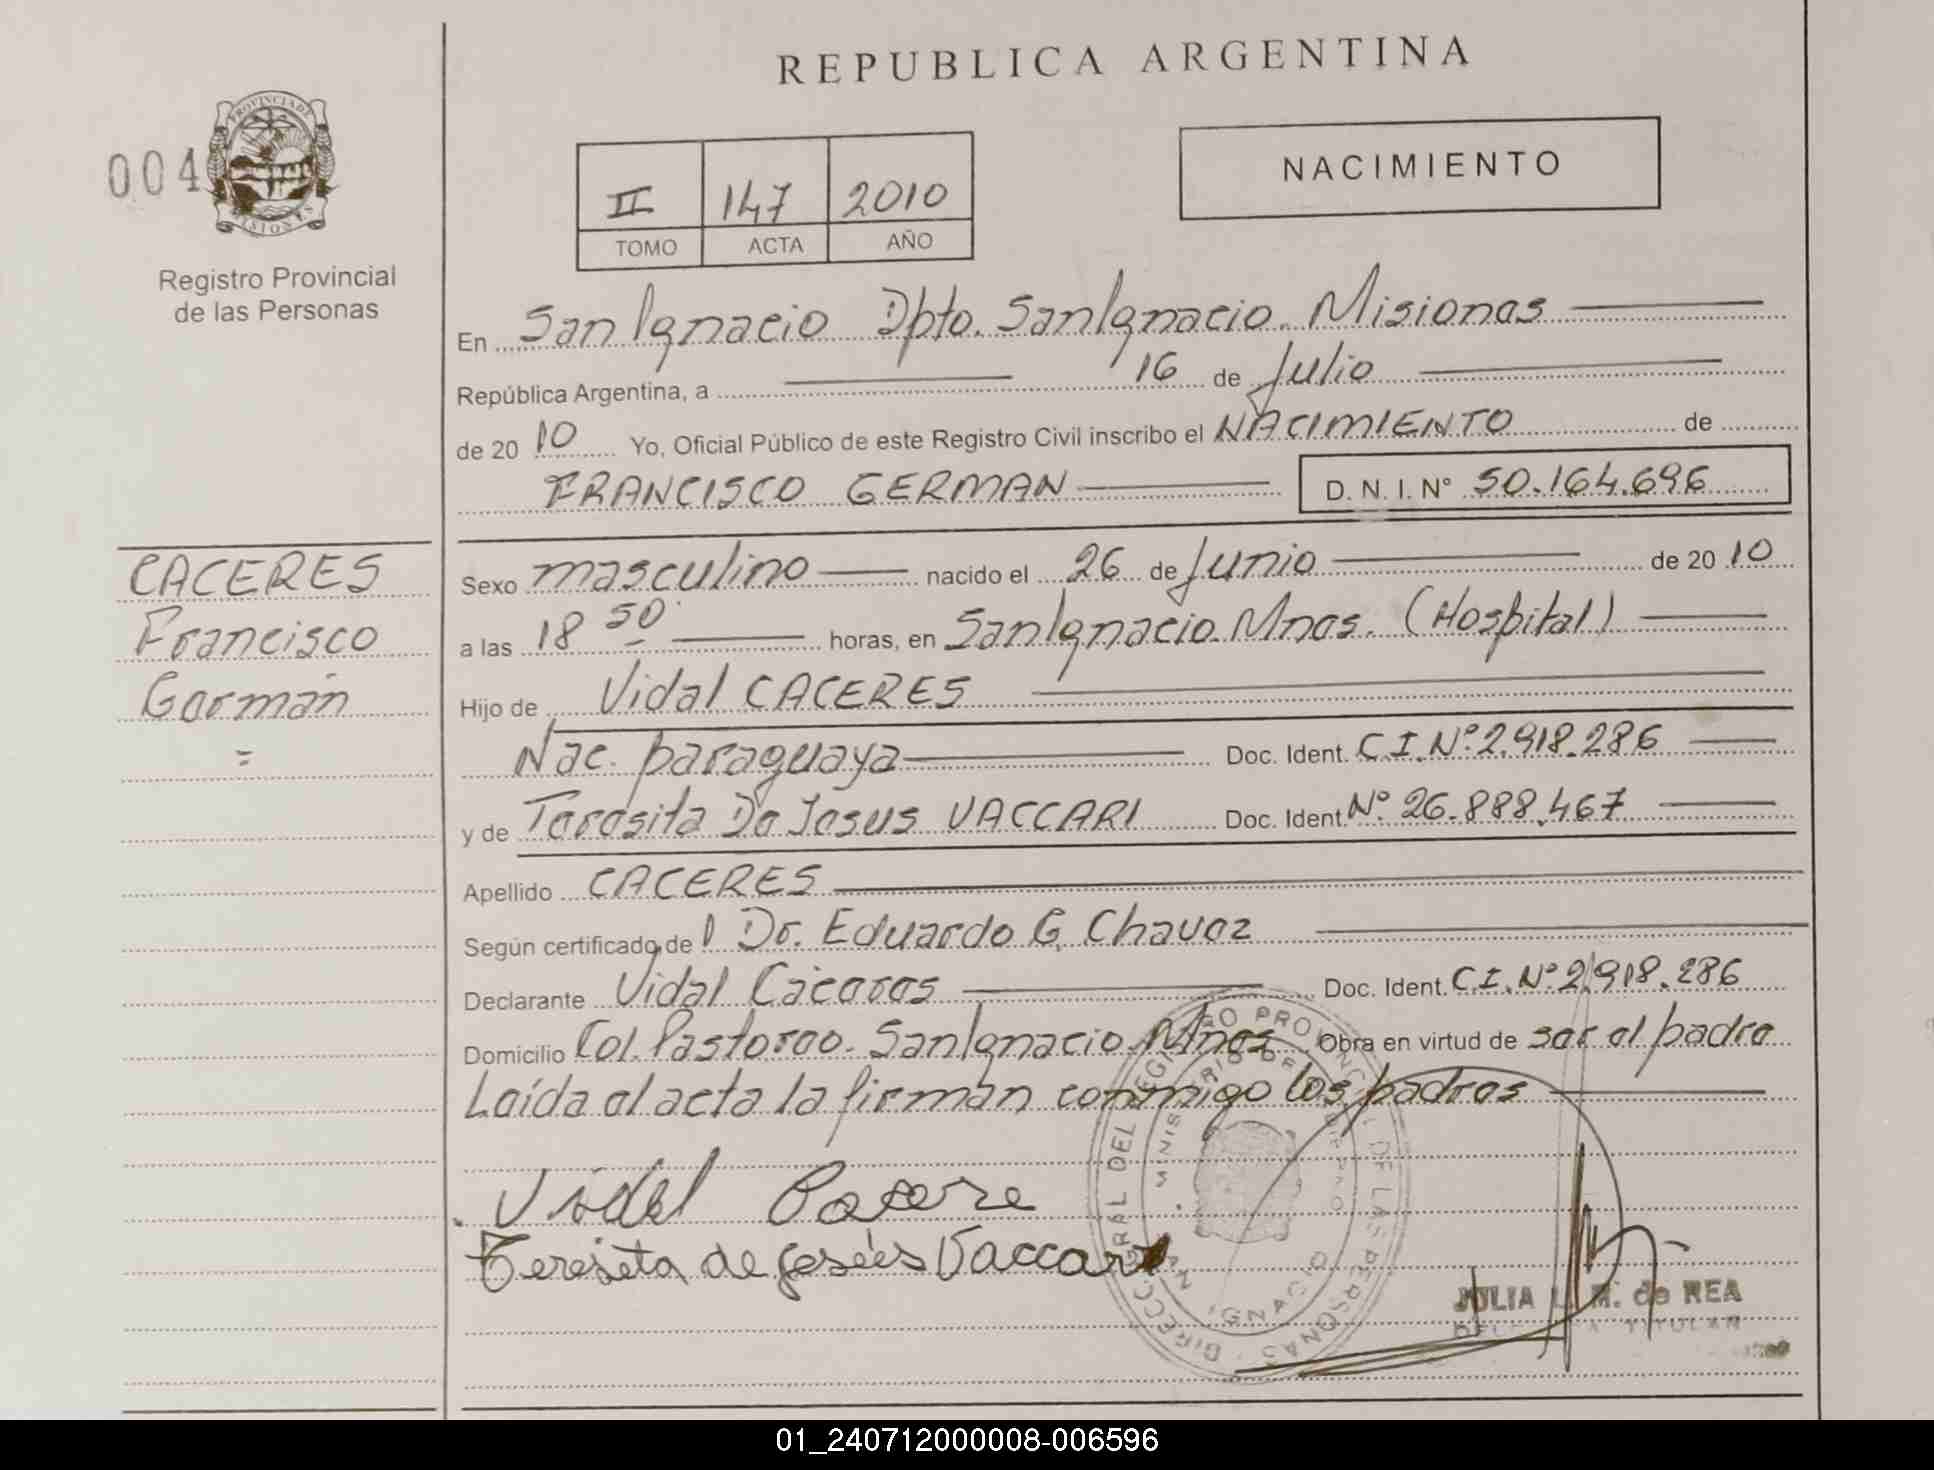 REPUBLICA ARGENTINA
004
PROVINCIA DE MISIONES
Registro Provincial
de las Personas
II 147 2010
TOMO ACTA AÑO
NACIMIENTO
En San Ignacio Dpto. San Ignacio. Misiones
República Argentina, a 16 de Julio
de 2010 Yo, Oficial Público de este Registro Civil inscribo el NACIMIENTO de
FRANCISCO GERMAN D. N. I. N° 50.164.696
CACERES
Francisco
Germán
=
Sexo masculino nacido el 26 de Junio de 2010
a las 18 50 horas, en San Ignacio. Mnes. (Hospital)
Hijo de Vidal CACERES
Nac. paraguaya Doc. Ident. C.I. N° 2.918.286
y de Teresita De Jesus VACCARI Doc. Ident. N° 26.888.467
Apellido CACERES
Según certificado de l Dr. Eduardo G. Chavez
Declarante Vidal Cáceres Doc. Ident. C.I. N° 2.918.286
Domicilio Col. Pastoreo. San Ignacio. Mnes Obra en virtud de ser el padre
Leída el acta la firman conmigo los padres
Vidal Cacere
Teresita de Jesús Vaccari
DIRECC GRAL DEL REGISTRO PROVINCIAL DE LAS PERSONAS
SAN IGNACIO
JULIA L. M. de REA
TITULAR
01_240712000008-006596